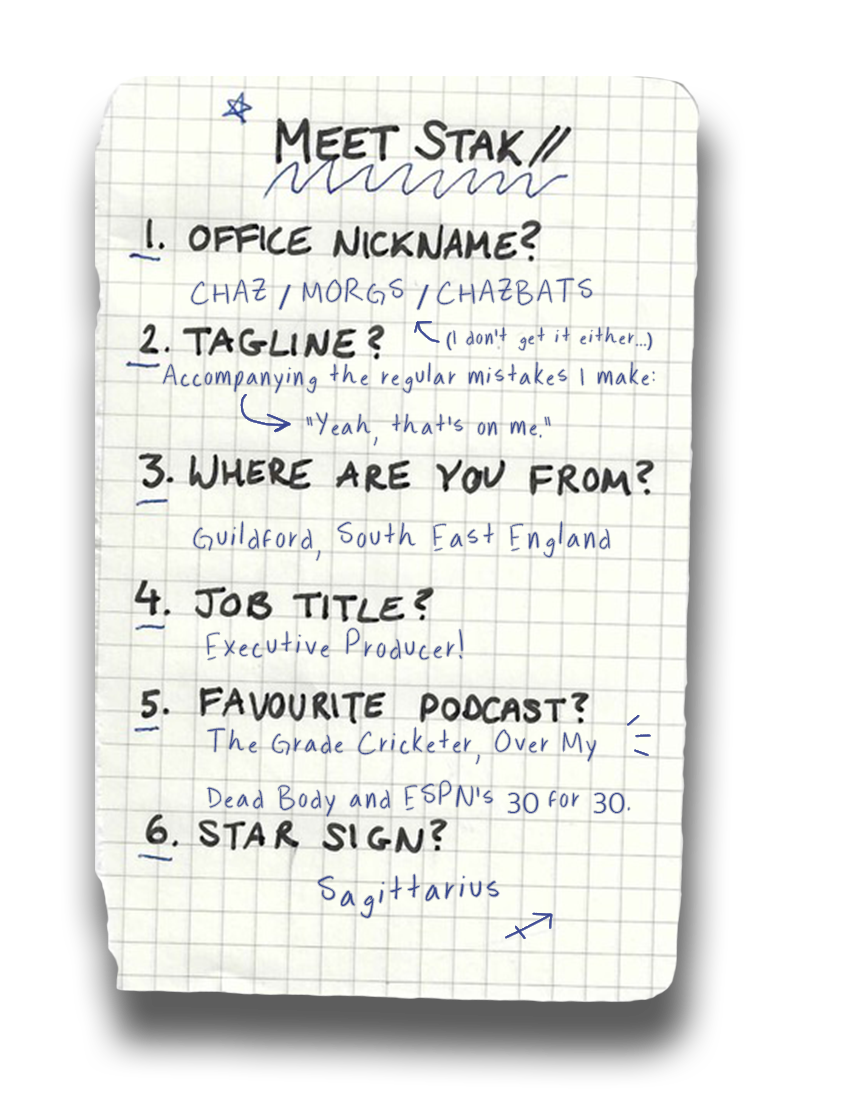 MEET STAK //
1. OFFICE NICKNAME?
CHAZ / MORGS / CHAZBATS
(I don't get it either...)
2. TAGLINE?
Accompanying the regular mistakes I make:
"Yeah, that's on me."
3. WHERE ARE YOU FROM?
Guildford, South East England
4. JOB TITLE?
Executive Producer!
5. FAVOURITE PODCAST?
The Grade Cricketer, Over My
Dead Body and ESPN's 30 for 30.
6. STAR SIGN?
Sagittarius